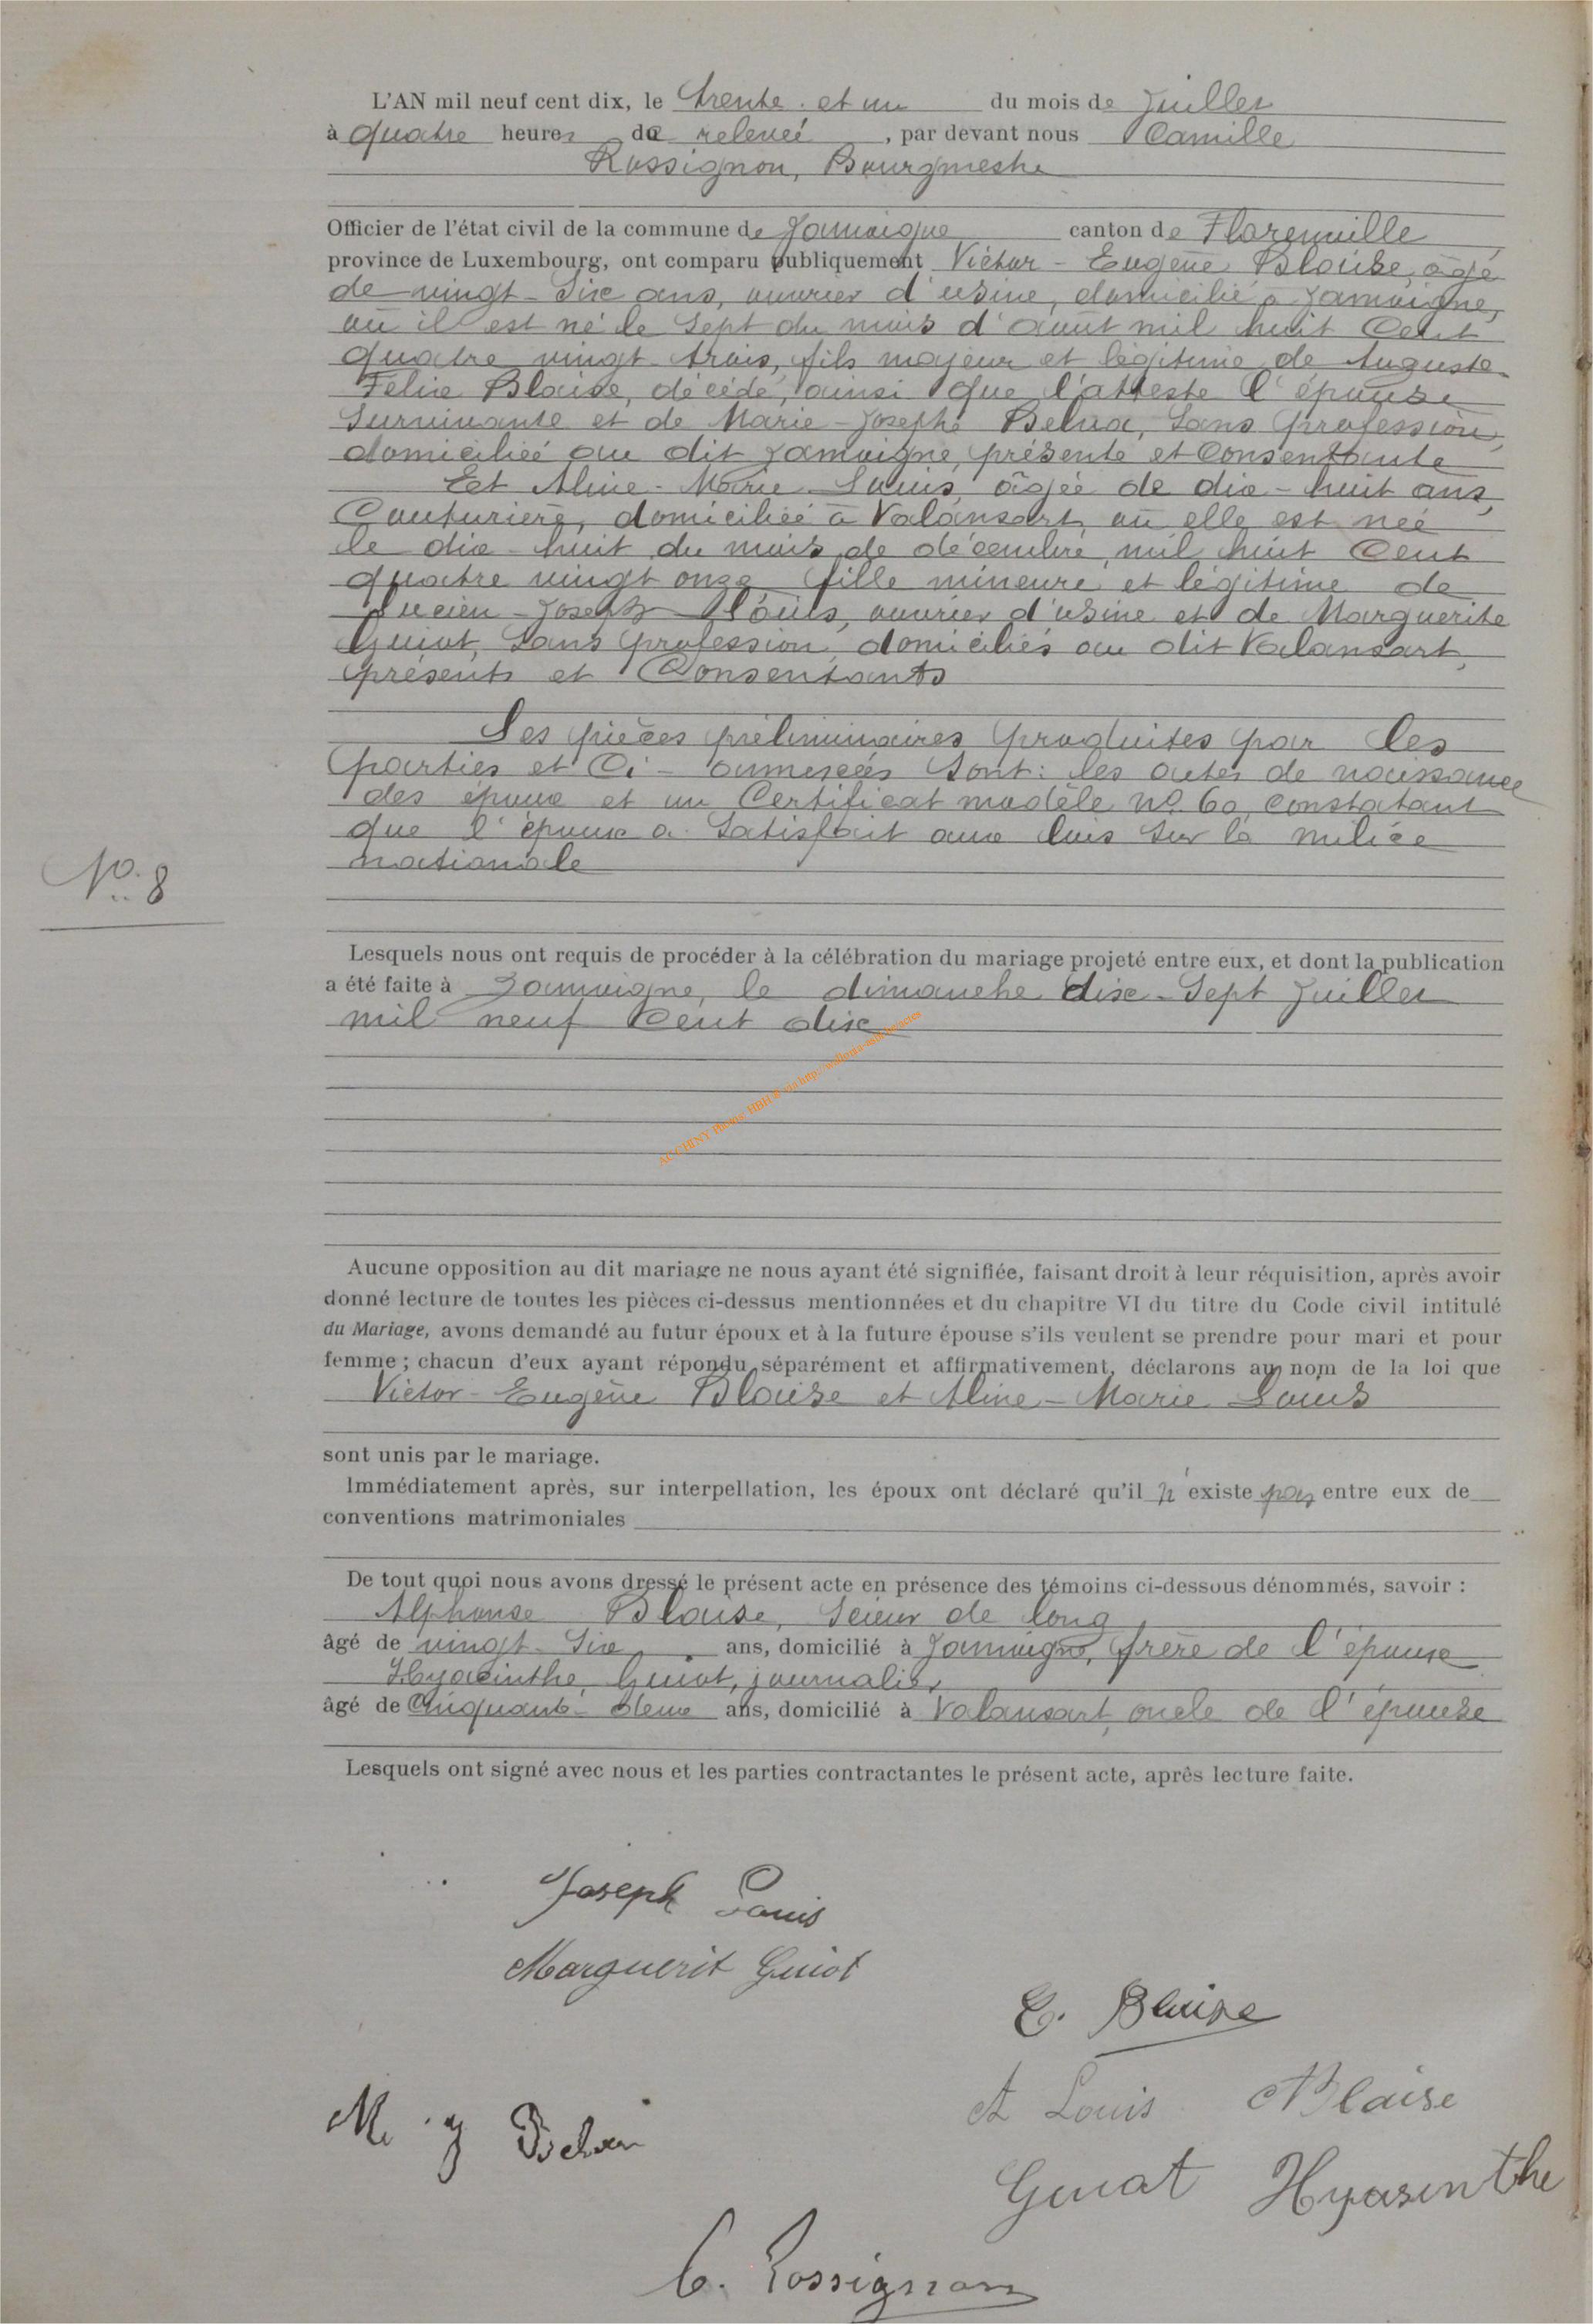 L'AN mil neuf cent dix, le trente et un du mois de Juillet
à quatre heures de relevée, par devant nous Camille
Rossignon, Bourgmestre
Officier de l'état civil de la commune de Jamoigne canton de Florenville
province de Luxembourg, ont comparu publiquement Victor-Eugène Blaise, âgé
de vingt-six ans, ouvrier d'usine, domicilié à Jamoigne,
où il est né le sept du mois d'août mil huit cent
quatre vingt trois, fils majeur et légitime de Auguste
Félix Blaise, décédé, ainsi que l'atteste l'épouse
survivante et de Marie-Josephe Belva, sans profession,
domiciliée au dit Jamoigne, présente et consentante
Et Aline-Marie Louis, âgée de dix-huit ans,
Couturière, domiciliée à Valansart, où elle est née
le dix-huit du mois de décembre mil huit cent
quatre vingt onze fille mineure et légitime de
Lucien-Joseph Louis, ouvrier d'usine et de Marguerite
Guiot, sans profession, domiciliés au dit Valansart,
présents et Consentants
Les pièces préliminaires produites par les
parties et Ci-annexées sont: les actes de naissance
des époux et un Certificat modèle no 60, constatant
que l'époux a satisfait aux lois sur la milice
nationale
No. 8
Lesquels nous ont requis de procéder à la célébration du mariage projeté entre eux, et dont la publication
a été faite à Jamoigne, le dimanche dix-sept Juillet
mil neuf cent dix
Aucune opposition au dit mariage ne nous ayant été signifiée, faisant droit à leur réquisition, après avoir
donné lecture de toutes les pièces ci-dessus mentionnées et du chapitre VI du titre du Code civil intitulé
du Mariage, avons demandé au futur époux et à la future épouse s'ils veulent se prendre pour mari et pour
femme ; chacun d'eux ayant répondu séparément et affirmativement, déclarons au nom de la loi que
Victor-Eugène Blaise et Aline-Marie Louis
sont unis par le mariage.
Immédiatement après, sur interpellation, les époux ont déclaré qu'il n'existe pas entre eux de
conventions matrimoniales
De tout quoi nous avons dressé le présent acte en présence des témoins ci-dessous dénommés, savoir :
Alphonse Blaise, scieur de long
âgé de vingt-six ans, domicilié à Jamoigne, frère de l'époux
Hyacinthe Guiot, journalier
âgé de Cinquante-deux ans, domicilié à Valansart, oncle de l'épouse
Lesquels ont signé avec nous et les parties contractantes le présent acte, après lecture faite.
Joseph Louis
Marguerit Guiot
E. Blaise
A Louis Blaise
M. J Belva
Guiot Hyasinthe
C. Rossignon